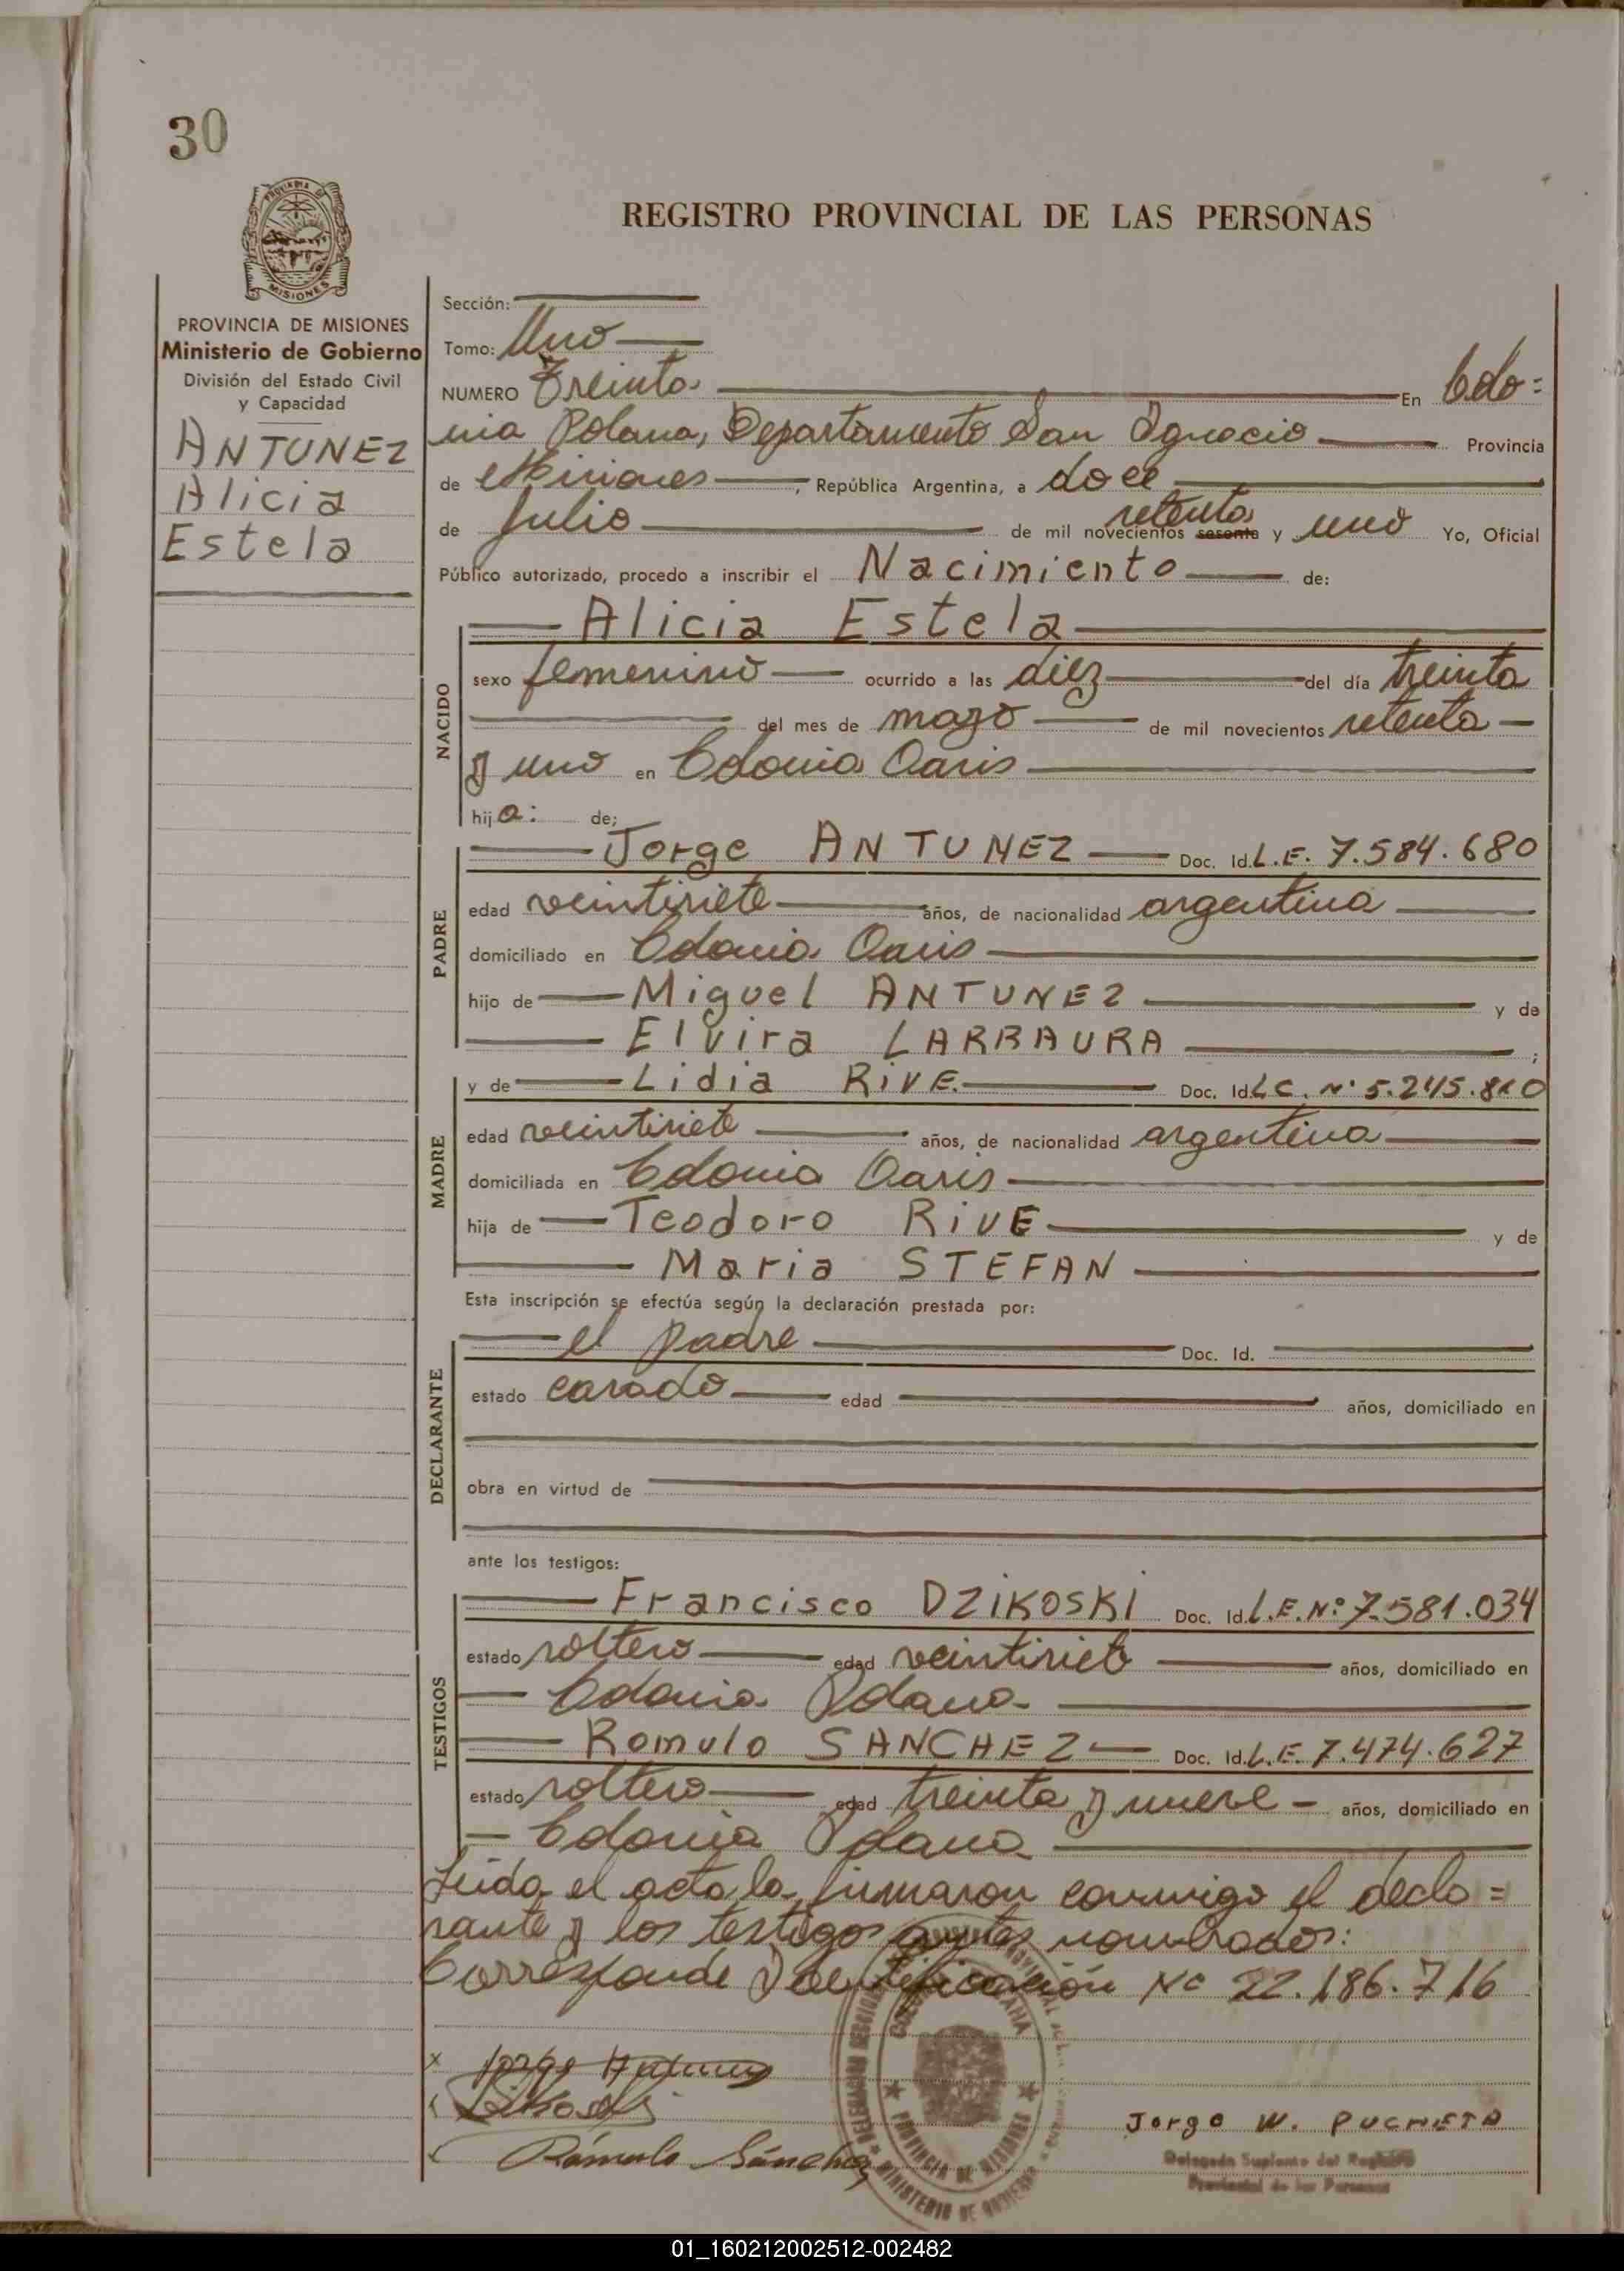 30
REGISTRO PROVINCIAL DE LAS PERSONAS
PROVINCIA DE MISIONES
Ministerio de Gobierno
División del Estado Civil
y Capacidad
ANTUNEZ
Alicia
Estela
Sección:
Tomo: Uno
NUMERO Treinta En Colo=
nia Polana, Departamento San Ignacio Provincia
de Misiones, República Argentina, a doce
de Julio de mil novecientos sesenta setenta y uno Yo, Oficial
Público autorizado, procedo a inscribir el Nacimiento de:
NACIDO
Alicia Estela
sexo femenino ocurrido a las diez del día treinta
del mes de mayo de mil novecientos setenta
y uno en Colonia Oasis
hija: de;
PADRE
Jorge ANTUNEZ Doc. Id. L.E. 7.584.680
edad veintisiete años, de nacionalidad argentina
domiciliado en Colonia Oasis
hijo de Miguel ANTUNEZ y de
Elvira LARRAURA ;
MADRE
y de Lidia RIVE. Doc. Id. L C. Nº 5.245.810
edad veintisiete años, de nacionalidad argentina
domiciliada en Colonia Oasis
hija de Teodoro RIVE y de
Maria STEFAN
Esta inscripción se efectúa según la declaración prestada por:
DECLARANTE
el padre Doc. Id.
estado casado edad años, domiciliado en
obra en virtud de
ante los testigos:
TESTIGOS
Francisco DZIKOSKI Doc. Id. L.E. Nº 7.581.034
estado soltero edad veintisiete años, domiciliado en
Colonia Polana
Romulo SANCHEZ Doc. Id. L.E. 7.474.627
estado soltero edad treinta y nueve años, domiciliado en
Colonia Polana
Leída el acta la firmaron conmigo el decla=
rante y los testigos antes nombrados:
Corresponde Identificación Nº 22.186.716
Jorge Antunez
Rómulo Sánchez
Jorge W. PUCHETA
Delegado Suplente del Registro
Provincial de las Personas
PROVINCIA DE MISIONES
MINISTERIO DE GOBIERNO
01_160212002512-002482